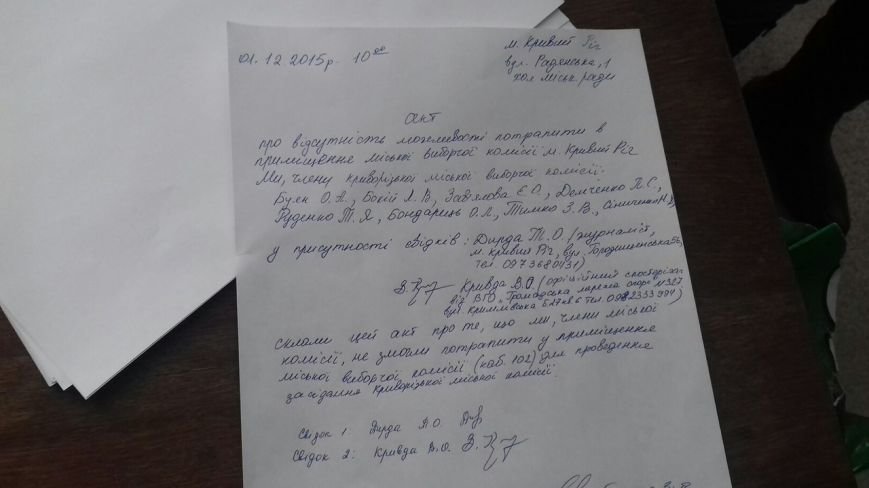 01.12.2015р. 10⁰⁰
м. Кривий Ріг
вул. Радянська, 1
хол міськ. ради
акт
про відсутність можливості потрапити в
приміщення міської виборчої комісії м. Кривий Ріг
Ми, члену криворізької міської виборчої комісії:
Буєк О.А., Бокій Л.В., Зав'ялова Є.О., Демченко Л.С.,
Руденко Т.Я., Бондарець О.Л., Тимко З.В., Сіниченко
у присутності свідків: Дирда Т.О. (журналіст,
м. Кривий Ріг, вул. Городищенська
тел.
Кривда В.О. (офіційний спостерігач
від ВГО „Громадська мережа опора" N327
вул. тел. 0982333994)
склали цей акт про те, що ми, члени міської
комісії, не змогли потрапити у приміщення
міської виборчої комісії (каб. 102) для проведення
засідання Криворізької міської комісії.
Свідок 1: Дирда
Свідок 2: Кривда В.О.